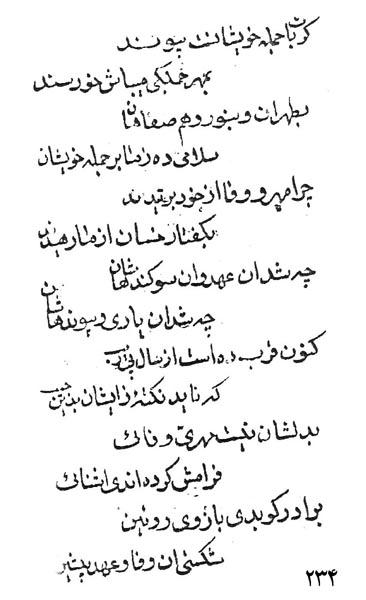 کرت با جمله خویشانت پیوند
بمهر جملکی میباش خورسند
بطهران و بنور و هم صفاهان
سلامی ده ز ما بر جمله خویشان
چرا مهر و وفا از خود بریدند
بکفتار خسان از ما رهیدند
چه شد ان عهد و ان سوکندهاشان
چه شد ان یاری و پیوندهاشان
کنون قرب ده است از سال
که ناید نکتۀ زایشان پدیدار
بدلشان نیست مهری و وفائی
فرامش کرده‌اند اشنائی
برادر کو بدی بازوی روئین
شکستی ان وفا و عهد
۲۳۴